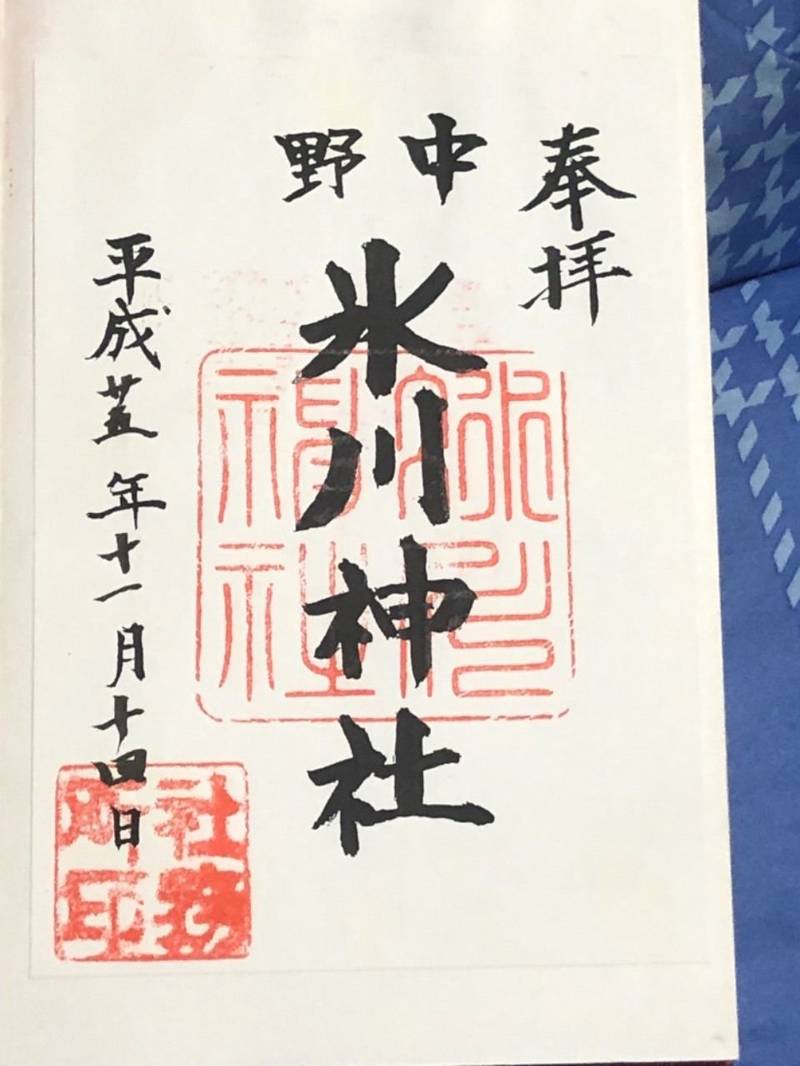 奉拝
中野
氷川神社
平成廿五年十一月十四日
氷川神社
社務所印